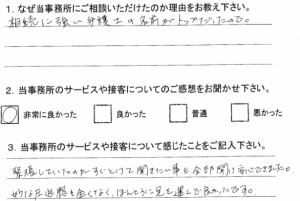 1. なぜ当事務所にご相談いただけたのか理由をお教え下さい。
相続に強い弁護士の名前がトップだったので。
2. 当事務所のサービスや接客についてのご感想をお聞かせ下さい。
非常に良かった 良かった 普通 悪かった
3. 当事務所のサービスや接客について感じたことをご記入下さい。
緊張していたのがすぐとけて聞きたい事も全部聞く事ができました。
な圧迫感も全くなく、ほんとうに足を運んで良かったです。